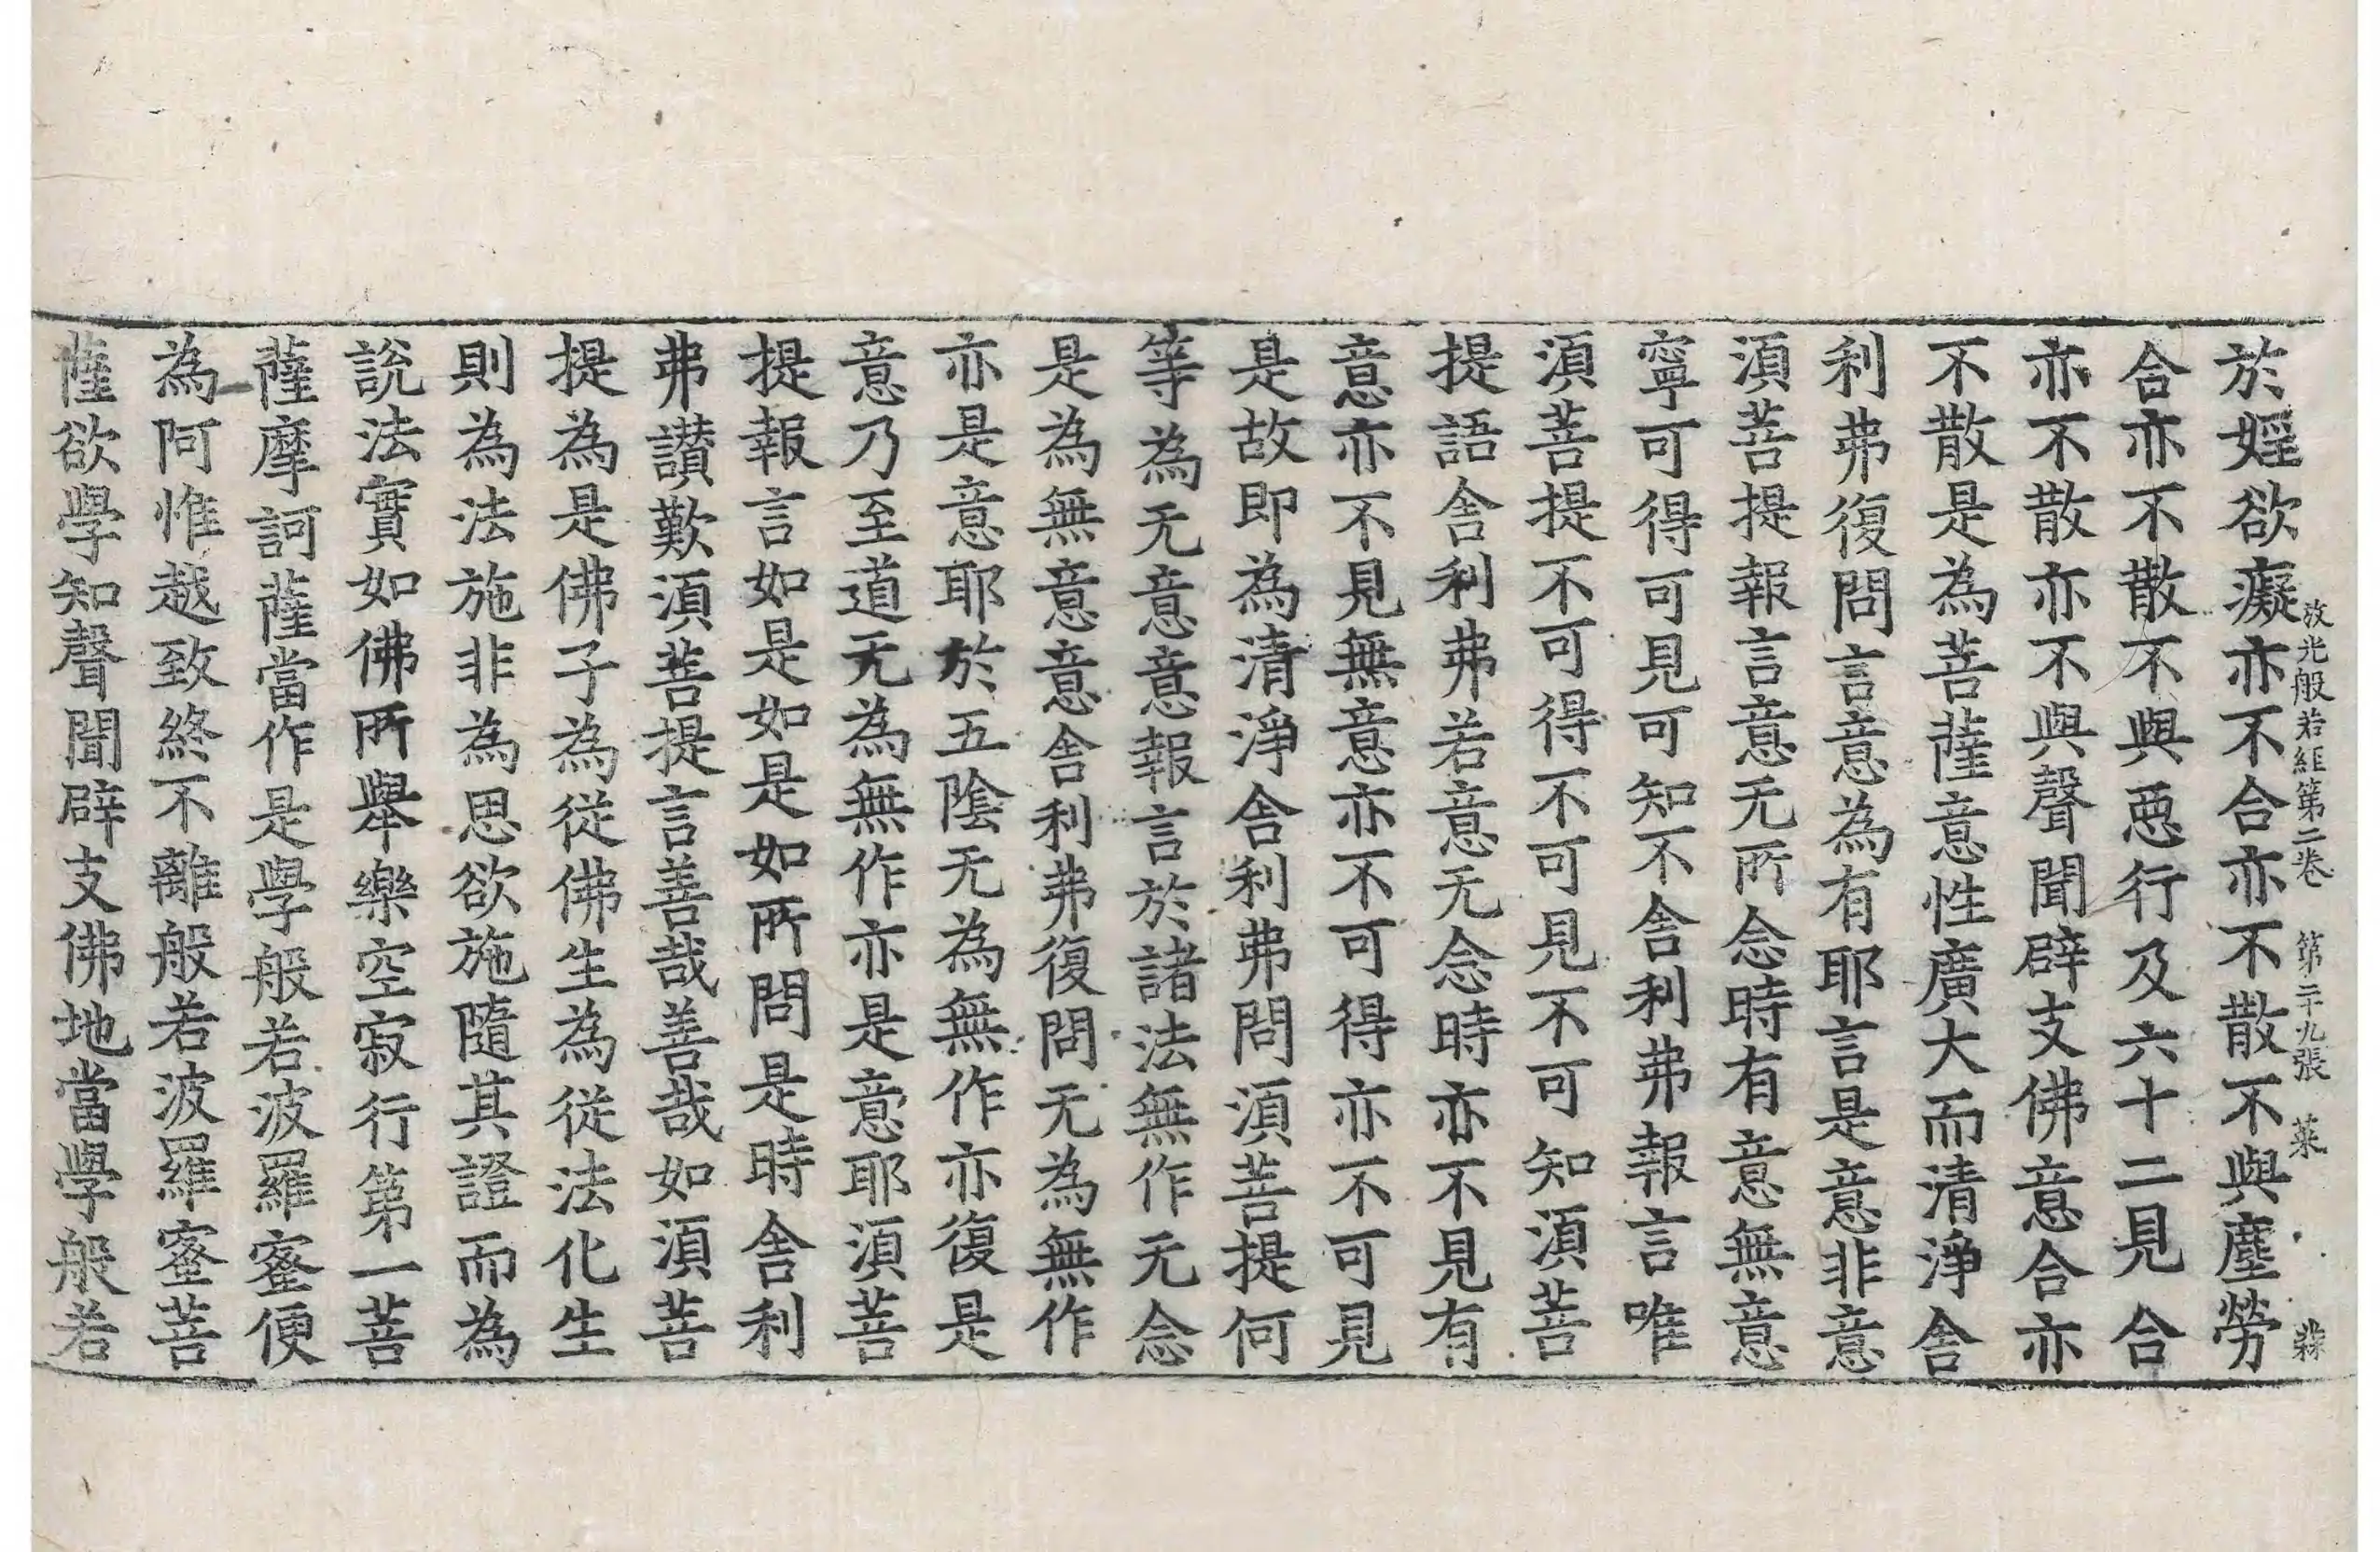 放光般若經第二卷　第二十九張　菜
於婬欲癡亦不合亦不散不與塵勞
合亦不散不與惡行及六十二見合
亦不散亦不與聲聞辟支佛意合亦
不散是為菩薩意性廣大而清淨舍
利弗復問言意為有耶言是意非意
須菩提報言意无所念時有意無意
寧可得可見可知不舍利弗報言唯
須菩提不可得不可見不可知須菩
提語舍利弗若意无念時亦不見有
意亦不見無意亦不可得亦不可見
是故即為清淨舍利弗問須菩提何
等為无意意報言於諸法無作无念
是為無意意舍利弗復問无為無作
亦是意耶於五陰无為無作亦復是
意乃至道无為無作亦是意耶須菩
提報言如是如是如所問是時舍利
弗讃歎須菩提言善哉善哉如須菩
提為是佛子為從佛生為從法化生
則為法施非為思欲施隨其證而為
說法實如佛所舉樂空寂行第一菩
薩摩訶薩當作是學般若波羅蜜便
為阿惟越致終不離般若波羅蜜菩
薩欲學知聲聞辟支佛地當學般若